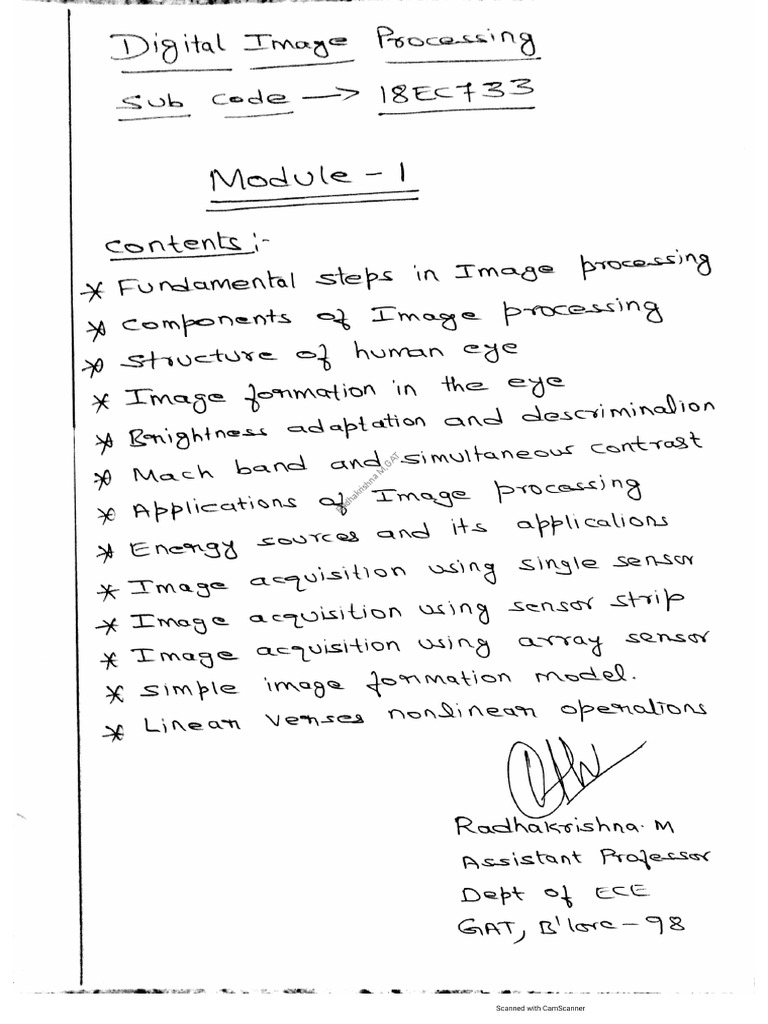 Digital Image Processing
Sub code → 18EC733
Module - 1
Contents :-
* Fundamental steps in Image processing
* Components of Image processing
* Structure of human eye
* Image formation in the eye
* Brightness adaptation and descrimination
* Mach band and simultaneous contrast
Radhakrishna M, GAT
* Applications of Image processing
* Energy sources and its applications
* Image acquisition using single sensor
* Image acquisition using sensor strip
* Image acquisition using array sensor
* Simple image formation model.
* Linear verses nonlinear operations
Radhakrishna. M
Assistant Professor
Dept of ECE
GAT, B'lore - 98
Scanned with CamScanner